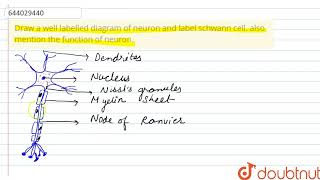 644029440
Draw a well labelled diagram of neuron and label schwann cell. also
mention the function of neuron.
Dendrites
Nucleus
Nissl's granules
Myelin Sheet
Node of Ranvier
doubtnut